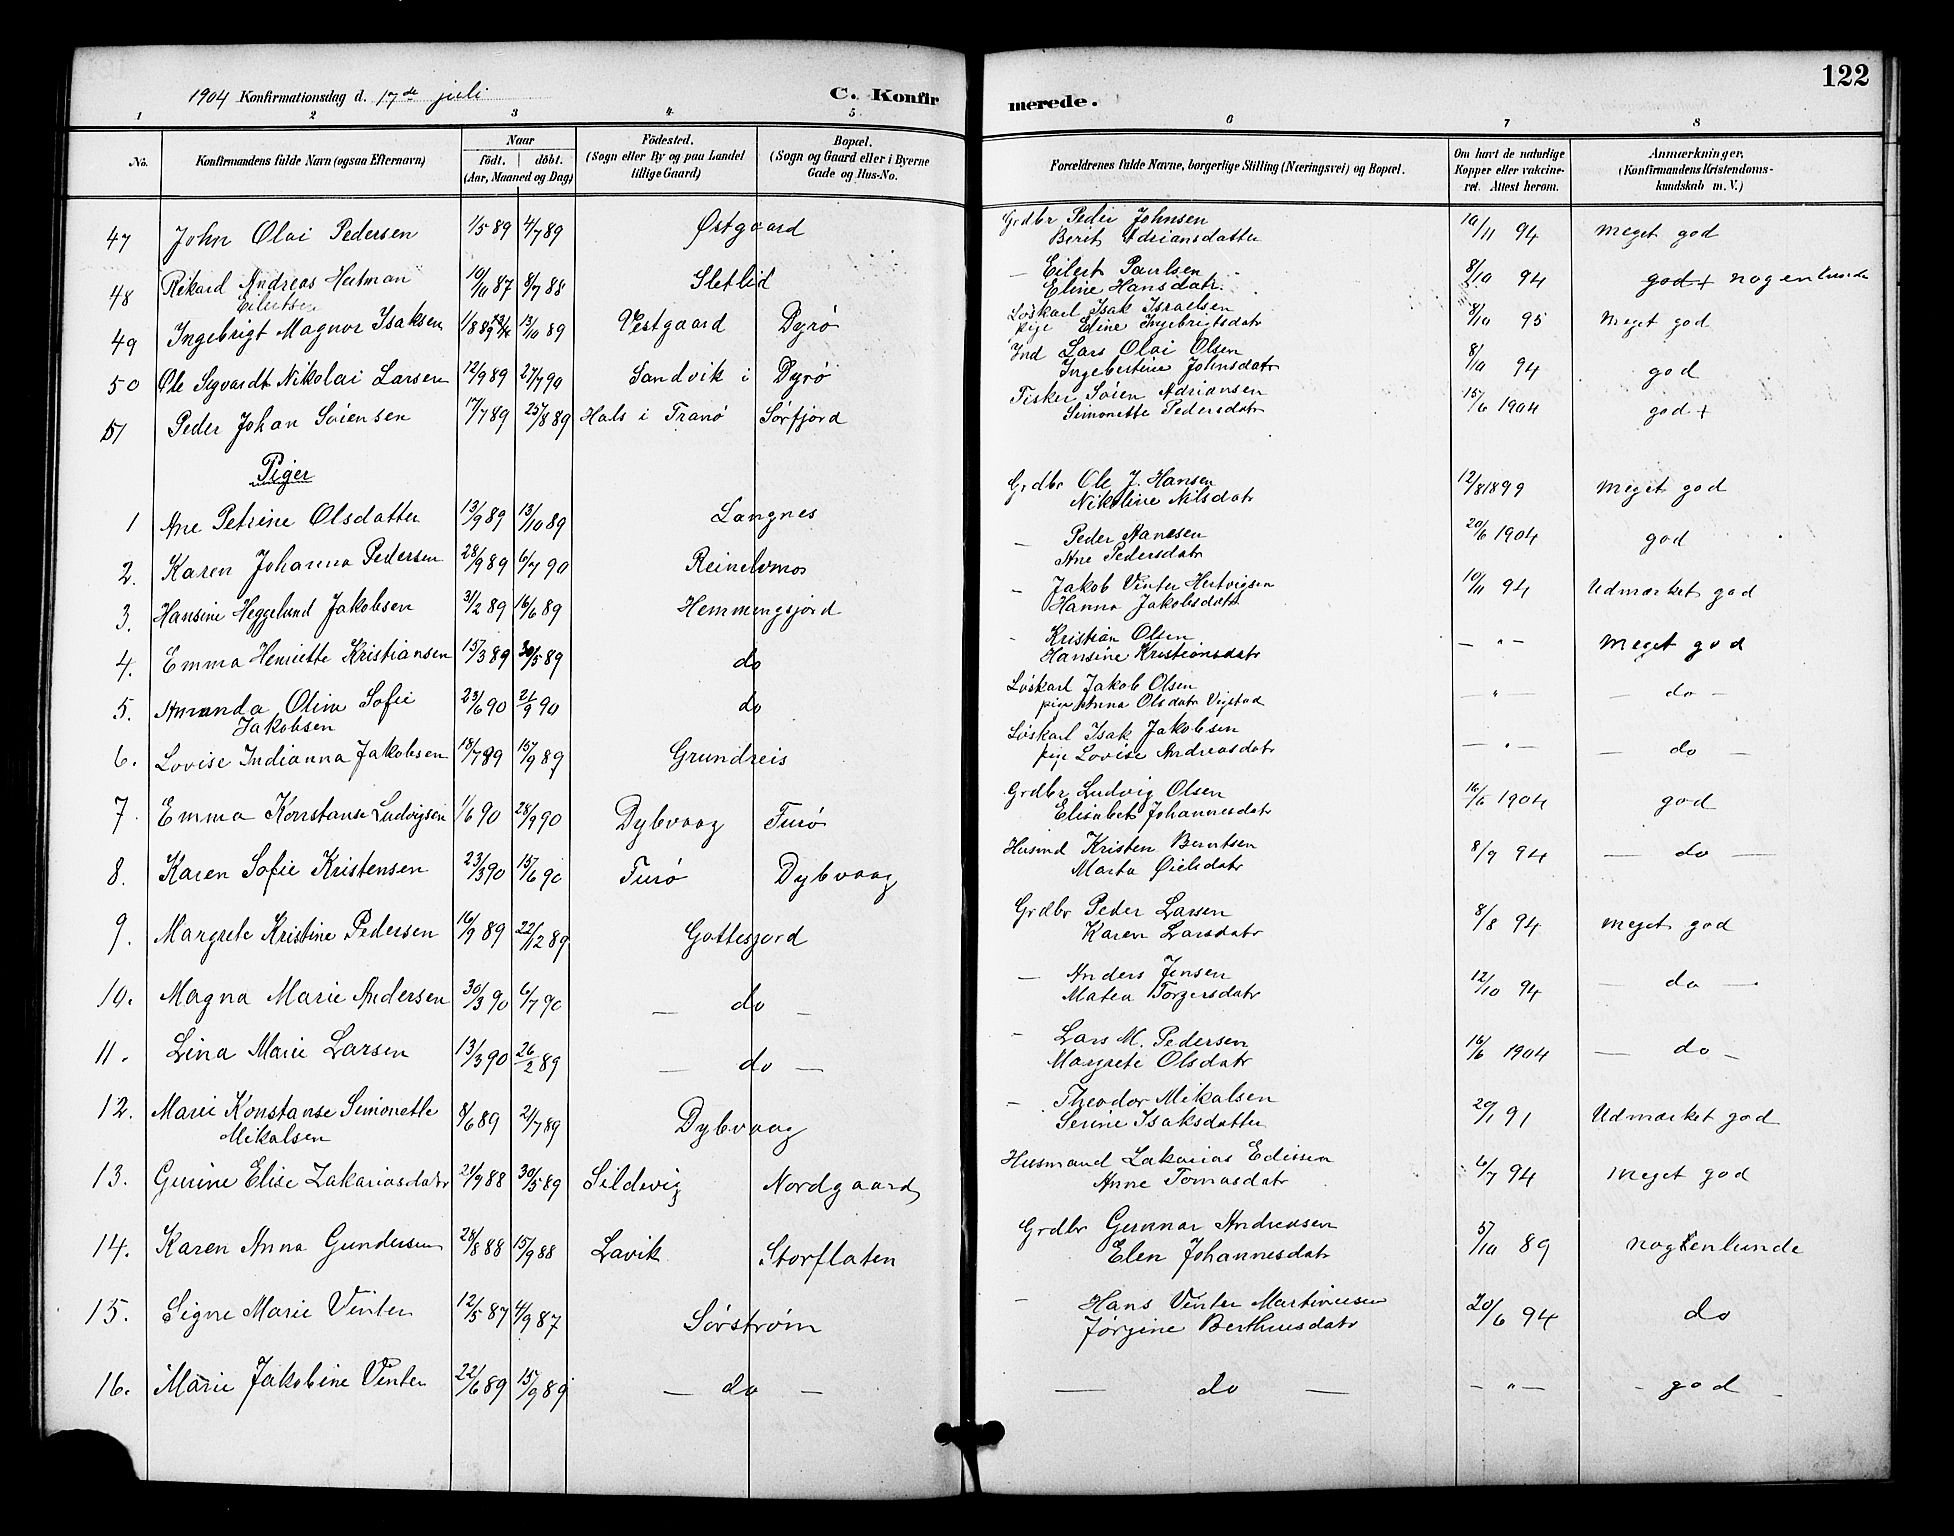 122
1904 Konfirmationsdag d. 17de juli C. Konfirmerede.
1 2 3 4 5 6 7 8
No. Konfirmandens fulde Navn (ogsaa Efternavn) Naar født. døbt. (Aar, Maaned og Dag) Födested. (Sogn eller By og paa Landet tillige Gaard) Bopæl. (Sogn og Gaard eller i Byerne Gade og Hus-No. Forældrenes fulde Navne, borgerlige Stilling (Næringsvei) og Bopæl. Om havt de naturlige Kopper eller vakcineret. Attest herom. Anmærkninger. (Konfirmandens Kristendomskundskab m. V.)
47 John Olai Pedersen 1/5 89 4/7 89 Østgaard Grdbr Peder Johnsen 10/11 94 Meget god
Berit Adriansdatter
48 Rikard Andreas Hatman 10/10 87 8/7 88 Sletlid — Eilert Paulsen 8/10 94 god + nogenlunde
Eilertsen Eline Hansdatr.
49 Ingebrigt Magnor Isaksen 1/8 89 13/10 89 Vestgaard Dyrø Løskarl Isak Israelsen 8/10 95 Meget god
pige Eline Ingebrigtsdatr
50 Ole Sigvardt Nikolai Larsen 12/9 89 27/7 90 Sandvik i Dyrø Ind Lars Olai Olsen 8/10 94 god
Ingebertine Johnsdatr
51 Peder Johan Søiensen 17/7 89 25/8 89 Hals i Tranø Sørfjord Fisker Søien Adriansen 15/6 1904 god +
Simonette Pedersdatr
Piger
1 Ane Petrine Olsdatter 13/9 89 13/10 89 Langnes Grdbr Ole J. Hansen 12/8 1899 Meget god
Nikoline Nilsdatr
2. Karen Johanna Pedersen 28/9 89 6/7 90 Reinelvmos — Peder Hansen 20/6 1904 god
Ane Pedersdatr
3. Hansine Heggelund Jakobsen 3/2 89 16/6 89 Hemmingsjord - Jakob Vinter Hertvigsen 10/11 94 Udmærket god
Hanna Jakobsdatr
4. Emma Henriette Kristiansen 15/3 89 30/5 89 do - Kristian Olsen — " — Meget god
Hansine Kristiansdatr
5. Amanda Olina Sofie 23/6 90 21/9 90 do Løskarl Jakob Olsen — " — do —
Jakobsen pige Anna Olsdatr Vigstad
6. Lovise Indianna Jakobsen 18/7 89 15/9 89 Grundreis Løskarl Isak Jakobsen — " — — do —
pige Lovise Andreasdatr
7. Emma Konstanse Ludvigsen 1/6 90 28/9 90 Dybvaag Turø Grdbr Ludvig Olsen 16/6 1904 god
Elisabet Johannesdatr
8. Karen Sofie Kristensen 23/3 90 15/6 90 Turø Dybvaag Husmd Kristen Berntsen 8/9 94 — do —
Marta Øielsdatr
9. Margrete Kristine Pedersen 16/9 89 22/12 89 Gottesjord Grdbr Peder Larsen 8/8 94 Meget god
Karen Larsdatr
10. Magna Marie Andersen 30/3 90 6/7 90 — do — — Anders Jensen 12/10 94 — do —
Matea Torgersdatr
11. Lina Marie Larsen 13/3 90 26/2 89 — do — - Lars M. Pedersen 16/6 1904 — do —
Margrete Olsdatr
12. Marie Konstanse Simonette 8/6 89 21/7 89 Dybvaag - Theodor Mikalsen 20/1 91 Udmærket god
Mikalsen Serine Isaksdatter
13. Gurine Elise Zakariasdatr 21/9 88 30/5 89 Sildevig Nordgaard Husmand Zakarias Edissen 6/7 94 Meget god
Anne Tomasdatr
14. Karen Anna Gundersen 28/8 88 15/9 88 Lavik Storflaten Grdbr Gunnar Andreasen 5/10 89 nogenlunde
Elen Johannesdatr
15. Signe Marie Vinter 12/5 87 4/9 87 Sørstrøm - Hans Vinter Martinusen 20/6 94 do
Jørgine Berthusdatr
16. Marie Jakobine Vinter 22/6 89 15/9 89 — do — — do — — " — - god -